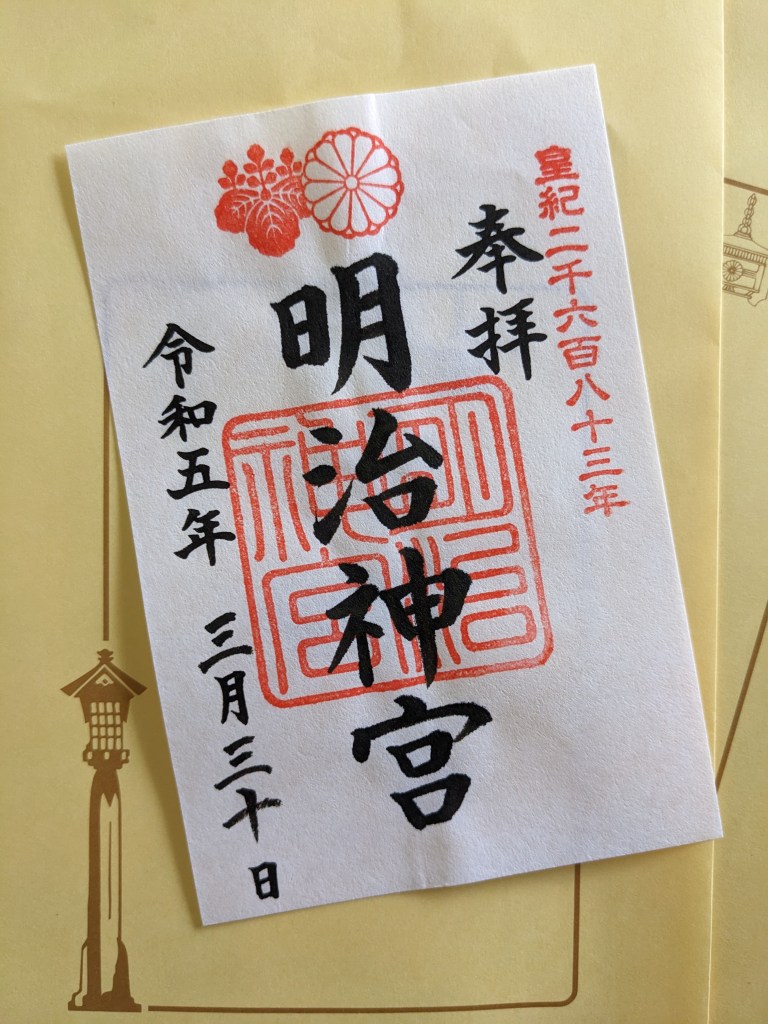 皇紀二千六百八十三年
奉拝
明治神宮
明治神宮
令和五年 三月三十日